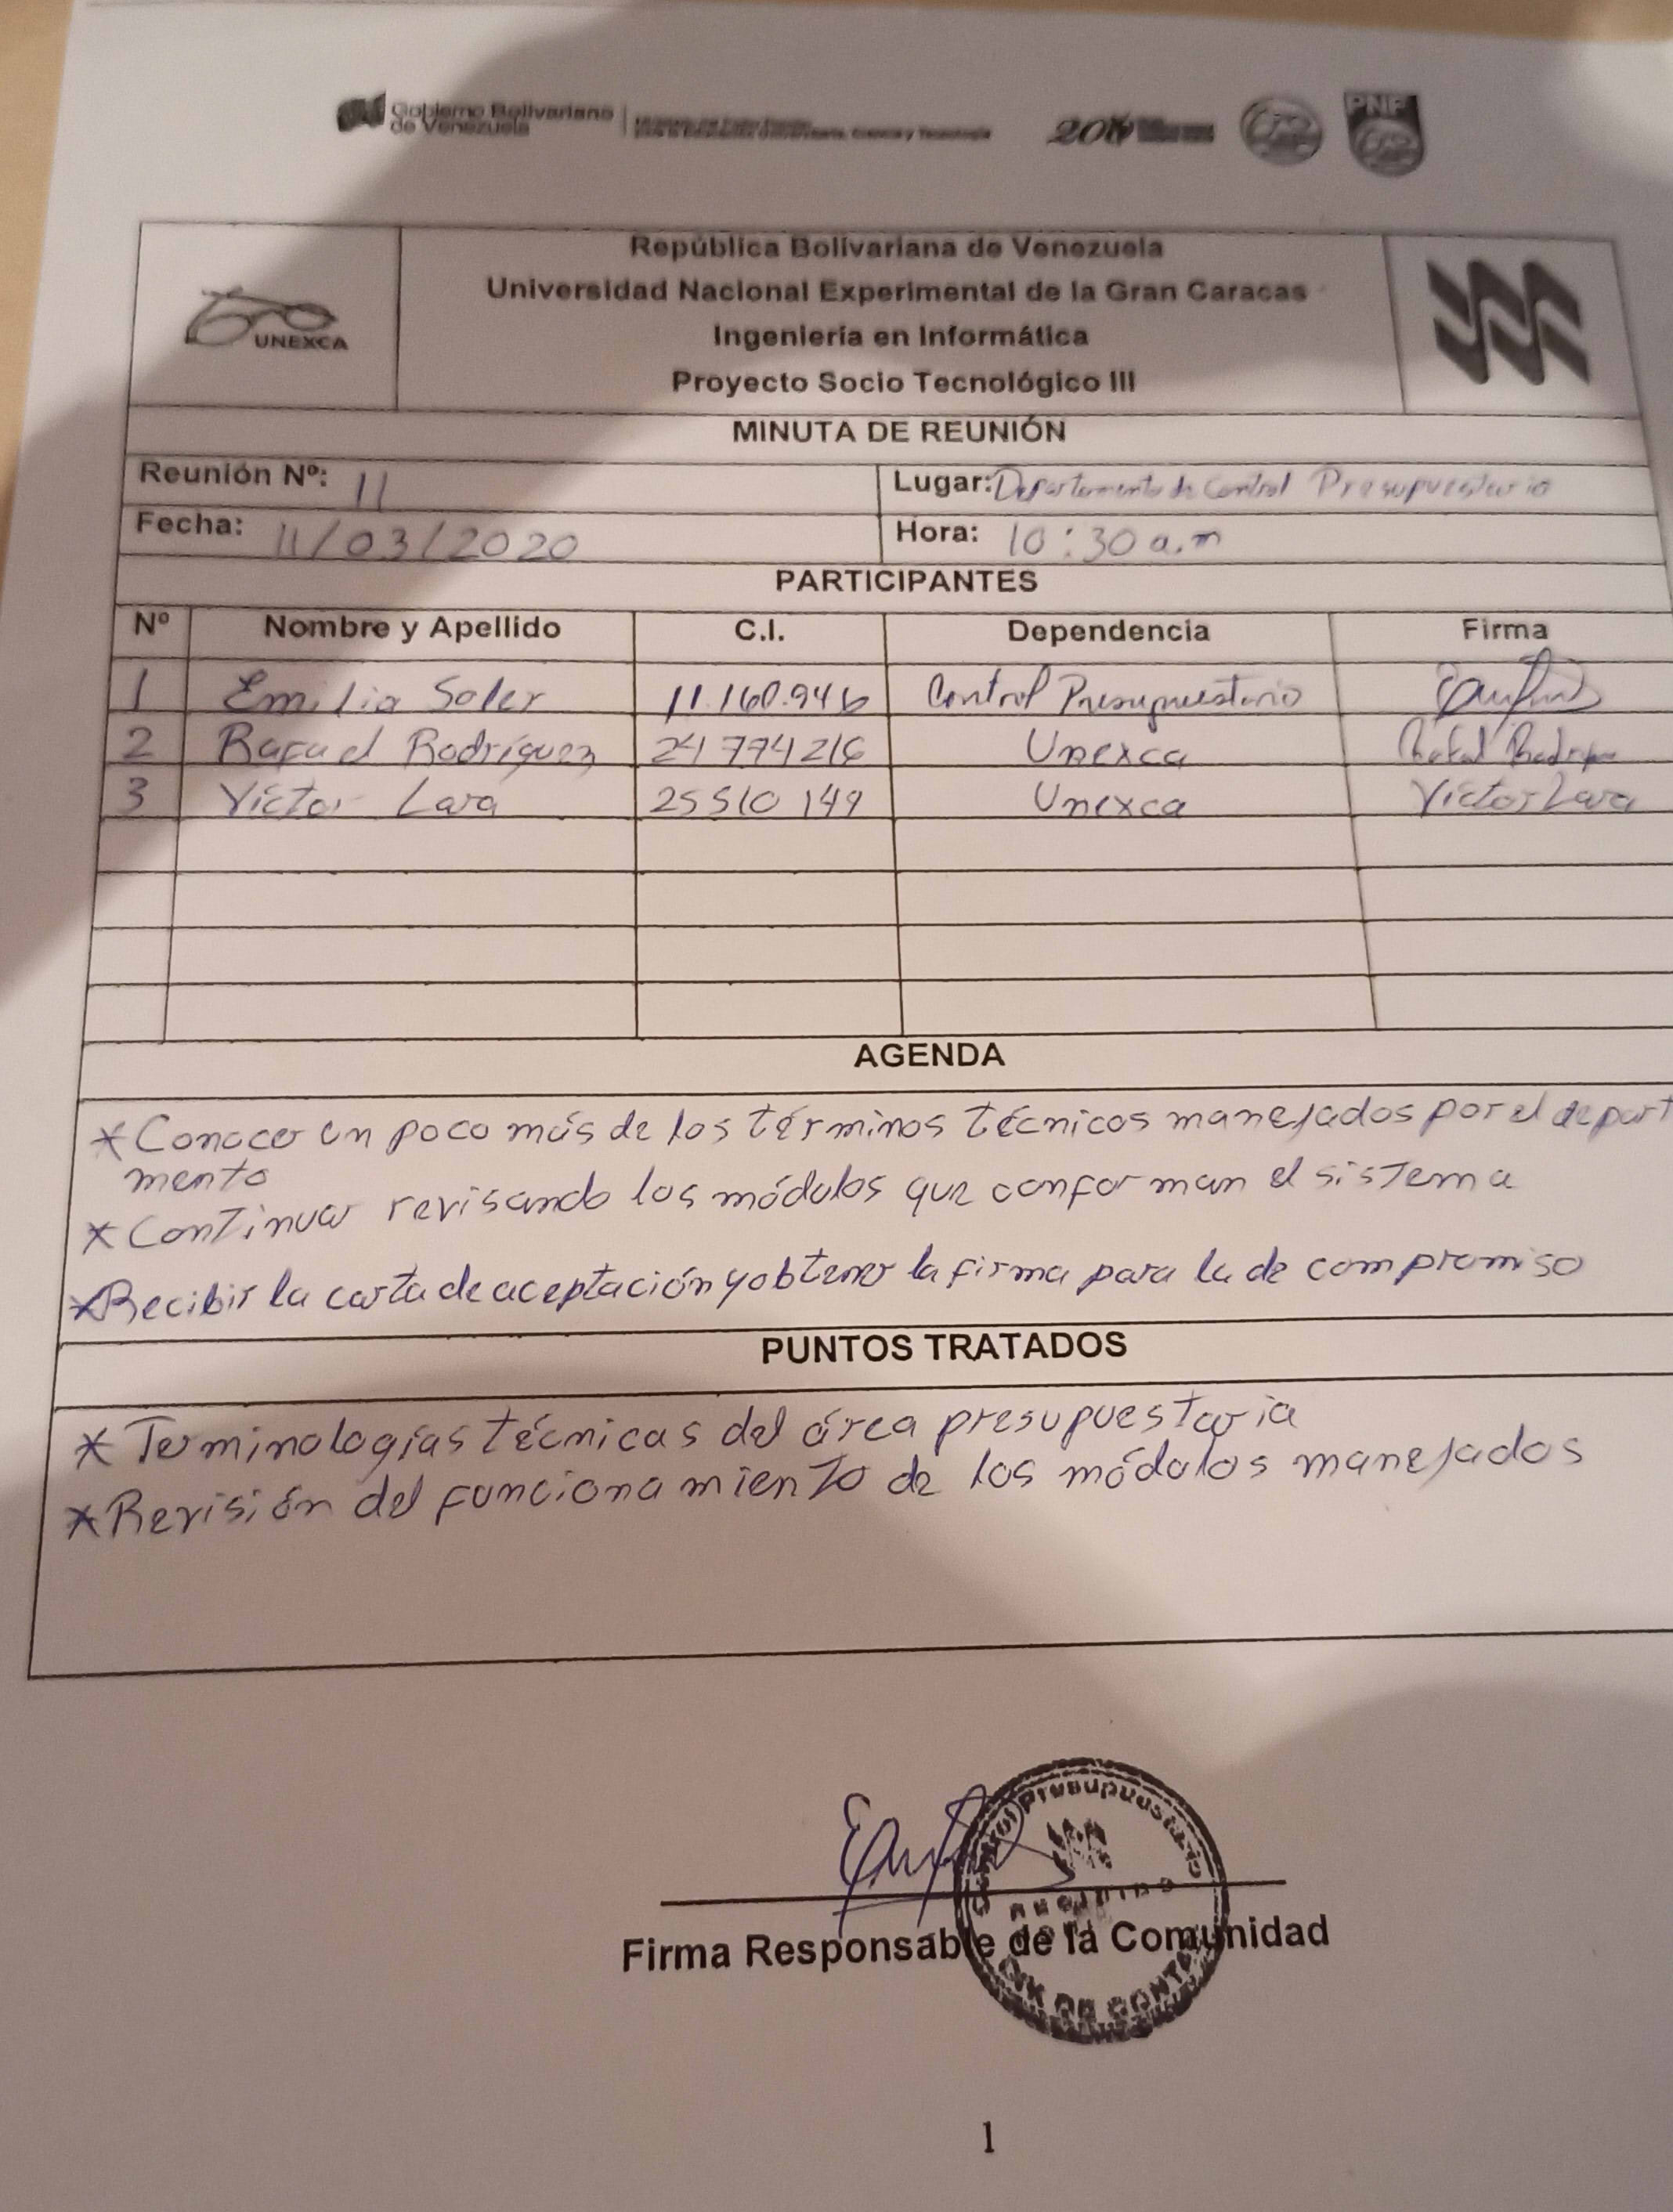 Gobierno Bolivariano
de Venezuela
200
PNF
UNEXCA
República Bolivariana de Venezuela
Universidad Nacional Experimental de la Gran Caracas
Ingeniería en Informática
Proyecto Socio Tecnológico III
MINUTA DE REUNIÓN
Reunión Nº: 11 Lugar: Departamento de Control Presupuestario
Fecha: 11/03/2020 Hora: 10:30 a.m
PARTICIPANTES
Nº Nombre y Apellido C.I. Dependencia Firma
1 Emilia Soler 11.160.946 Control Presupuestario
2 Rafael Rodríguez 24 774 216 Unexca Rafael Rodríguez
3 Víctor Lara 25 510 149 Unexca Víctor Lara
AGENDA
* Conocer un poco más de los términos técnicos manejados por el depart
mento
* Continuar revisando los módulos que conforman el sistema
* Recibir la carta de aceptación y obtener la firma para la de compromiso
PUNTOS TRATADOS
* Terminologías técnicas del área presupuestaria
* Revisión del funcionamiento de los módulos manejados
Control Presupuestario
Firma Responsable de la Comunidad
1